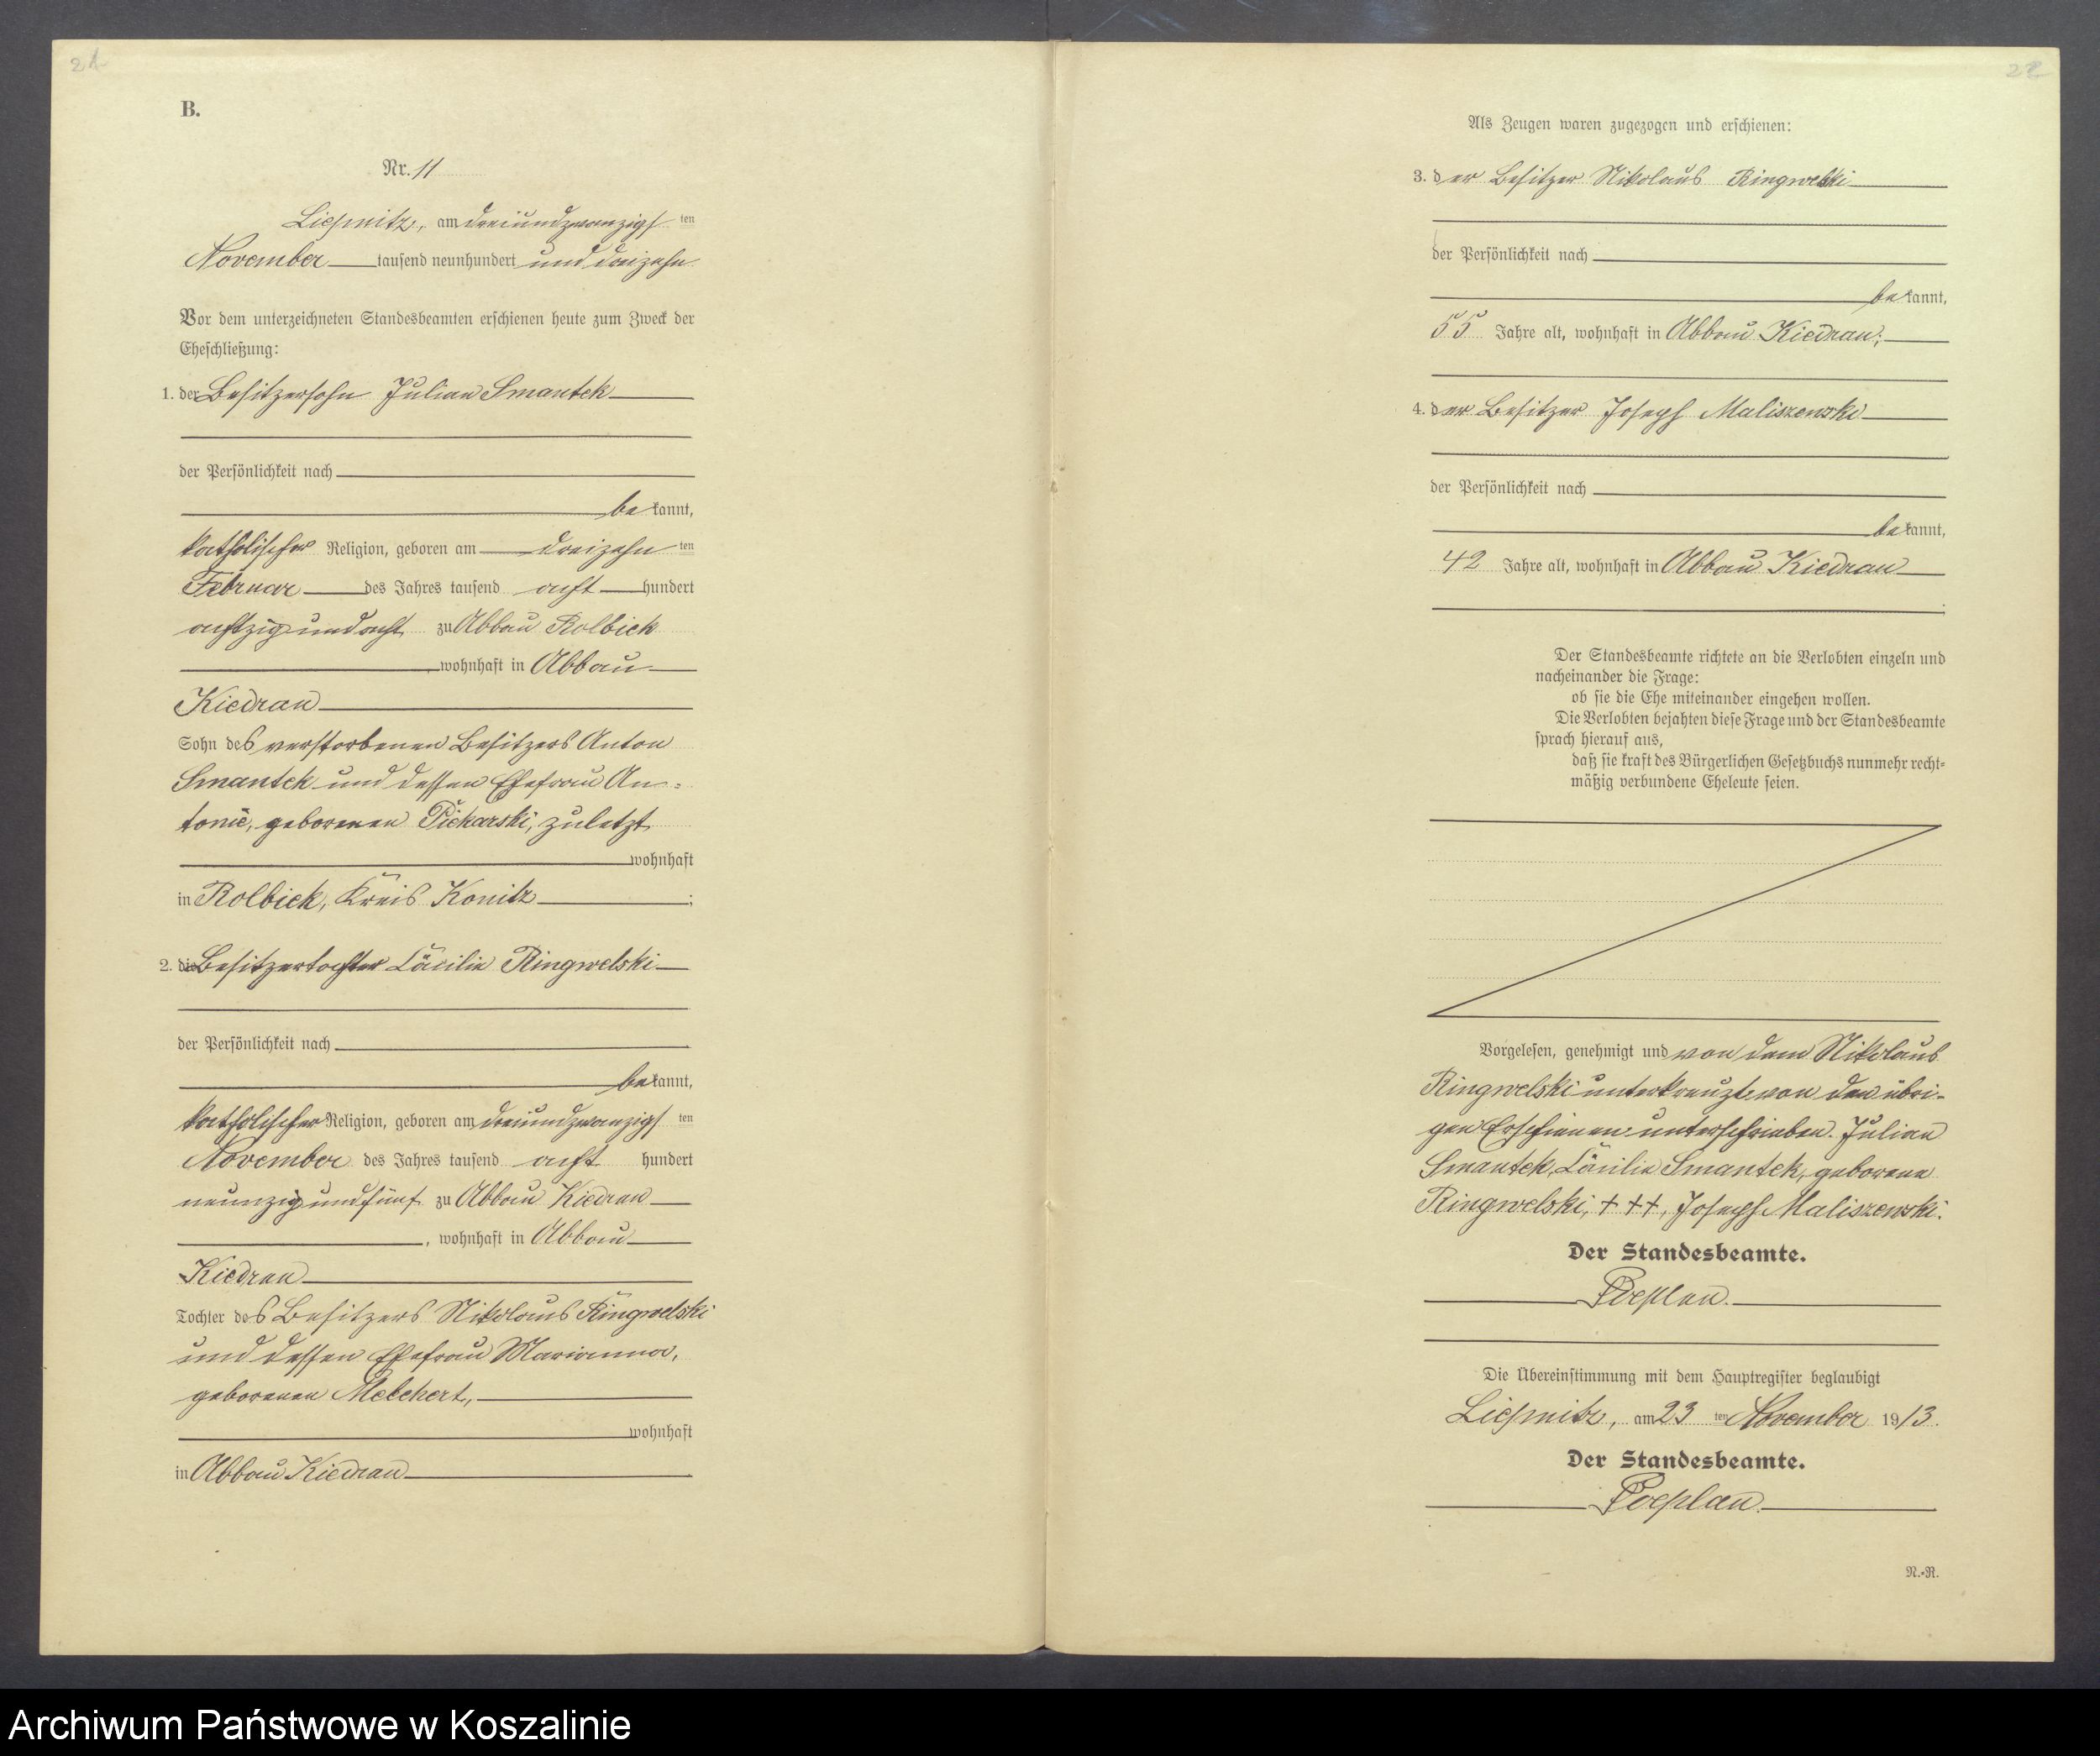 21
B.
Nr. 11
Liepnitz, am dreiundzwanzigsten
November tausend neunhundert und dreizehn
Vor dem unterzeichneten Standesbeamten erschienen heute zum Zweck der
Eheschließung:
1. der Besitzersohn Julian Smantek
der Persönlichkeit nach
bekannt,
katholischer Religion, geboren am dreizehnten
Februar des Jahres tausend acht hundert
achtzig und acht zu Abbau Rolbick
, wohnhaft in Abbau
Kiedrau
Sohn des verstorbenen Besitzers Anton
Smantek und dessen Ehefrau An=
tonie, geborenen Piekarski, zuletzt
wohnhaft
in Rolbiek, Kreis Konitz ;
2. die Besitzertochter Cäcilie Ringwelski
der Persönlichkeit nach
bekannt,
katholischer Religion, geboren am dreiundzwanzigsten
November des Jahres tausend acht hundert
neunzig und fünf zu Abbau Kiedrau
, wohnhaft in Abbau
Kiedrau
Tochter des Besitzers Nikolaus Ringwelski
und dessen Ehefrau Marianna,
geborenen Melchert,
wohnhaft
in Abbau Kiedrau
22
Als Zeugen waren zugezogen und erschienen:
3. der Besitzer Nikolaus Ringwelski
der Persönlichkeit nach
bekannt,
55 Jahre alt, wohnhaft in Abbau Kiedrau;
4. der Besitzer Joseph Maliszewski
der Persönlichkeit nach
bekannt,
42 Jahre alt, wohnhaft in Abbau Kiedrau
Der Standesbeamte richtete an die Verlobten einzeln und
nacheinander die Frage:
ob sie die Ehe miteinander eingehen wollen.
Die Verlobten bejahten diese Frage und der Standesbeamte
sprach hierauf aus,
daß sie kraft des Bürgerlichen Gesetzbuchs nunmehr recht=
mäßig verbundene Eheleute seien.
Vorgelesen, genehmigt und von dem Nikolaus
Ringwelski unterkreuzt von den übri-
gen Erschienen unterschrieben. Julian
Smantek, Cäcilie Smantek, geborene
Ringwelski, +++, Joseph Maliszewski.
Der Standesbeamte.
Poeplau.
Die Übereinstimmung mit dem Hauptregister beglaubigt
Liepnitz, am 23 ten November 1913.
Der Standesbeamte.
Poeplau.
N.-R.
Archiwum Państwowe w Koszalinie